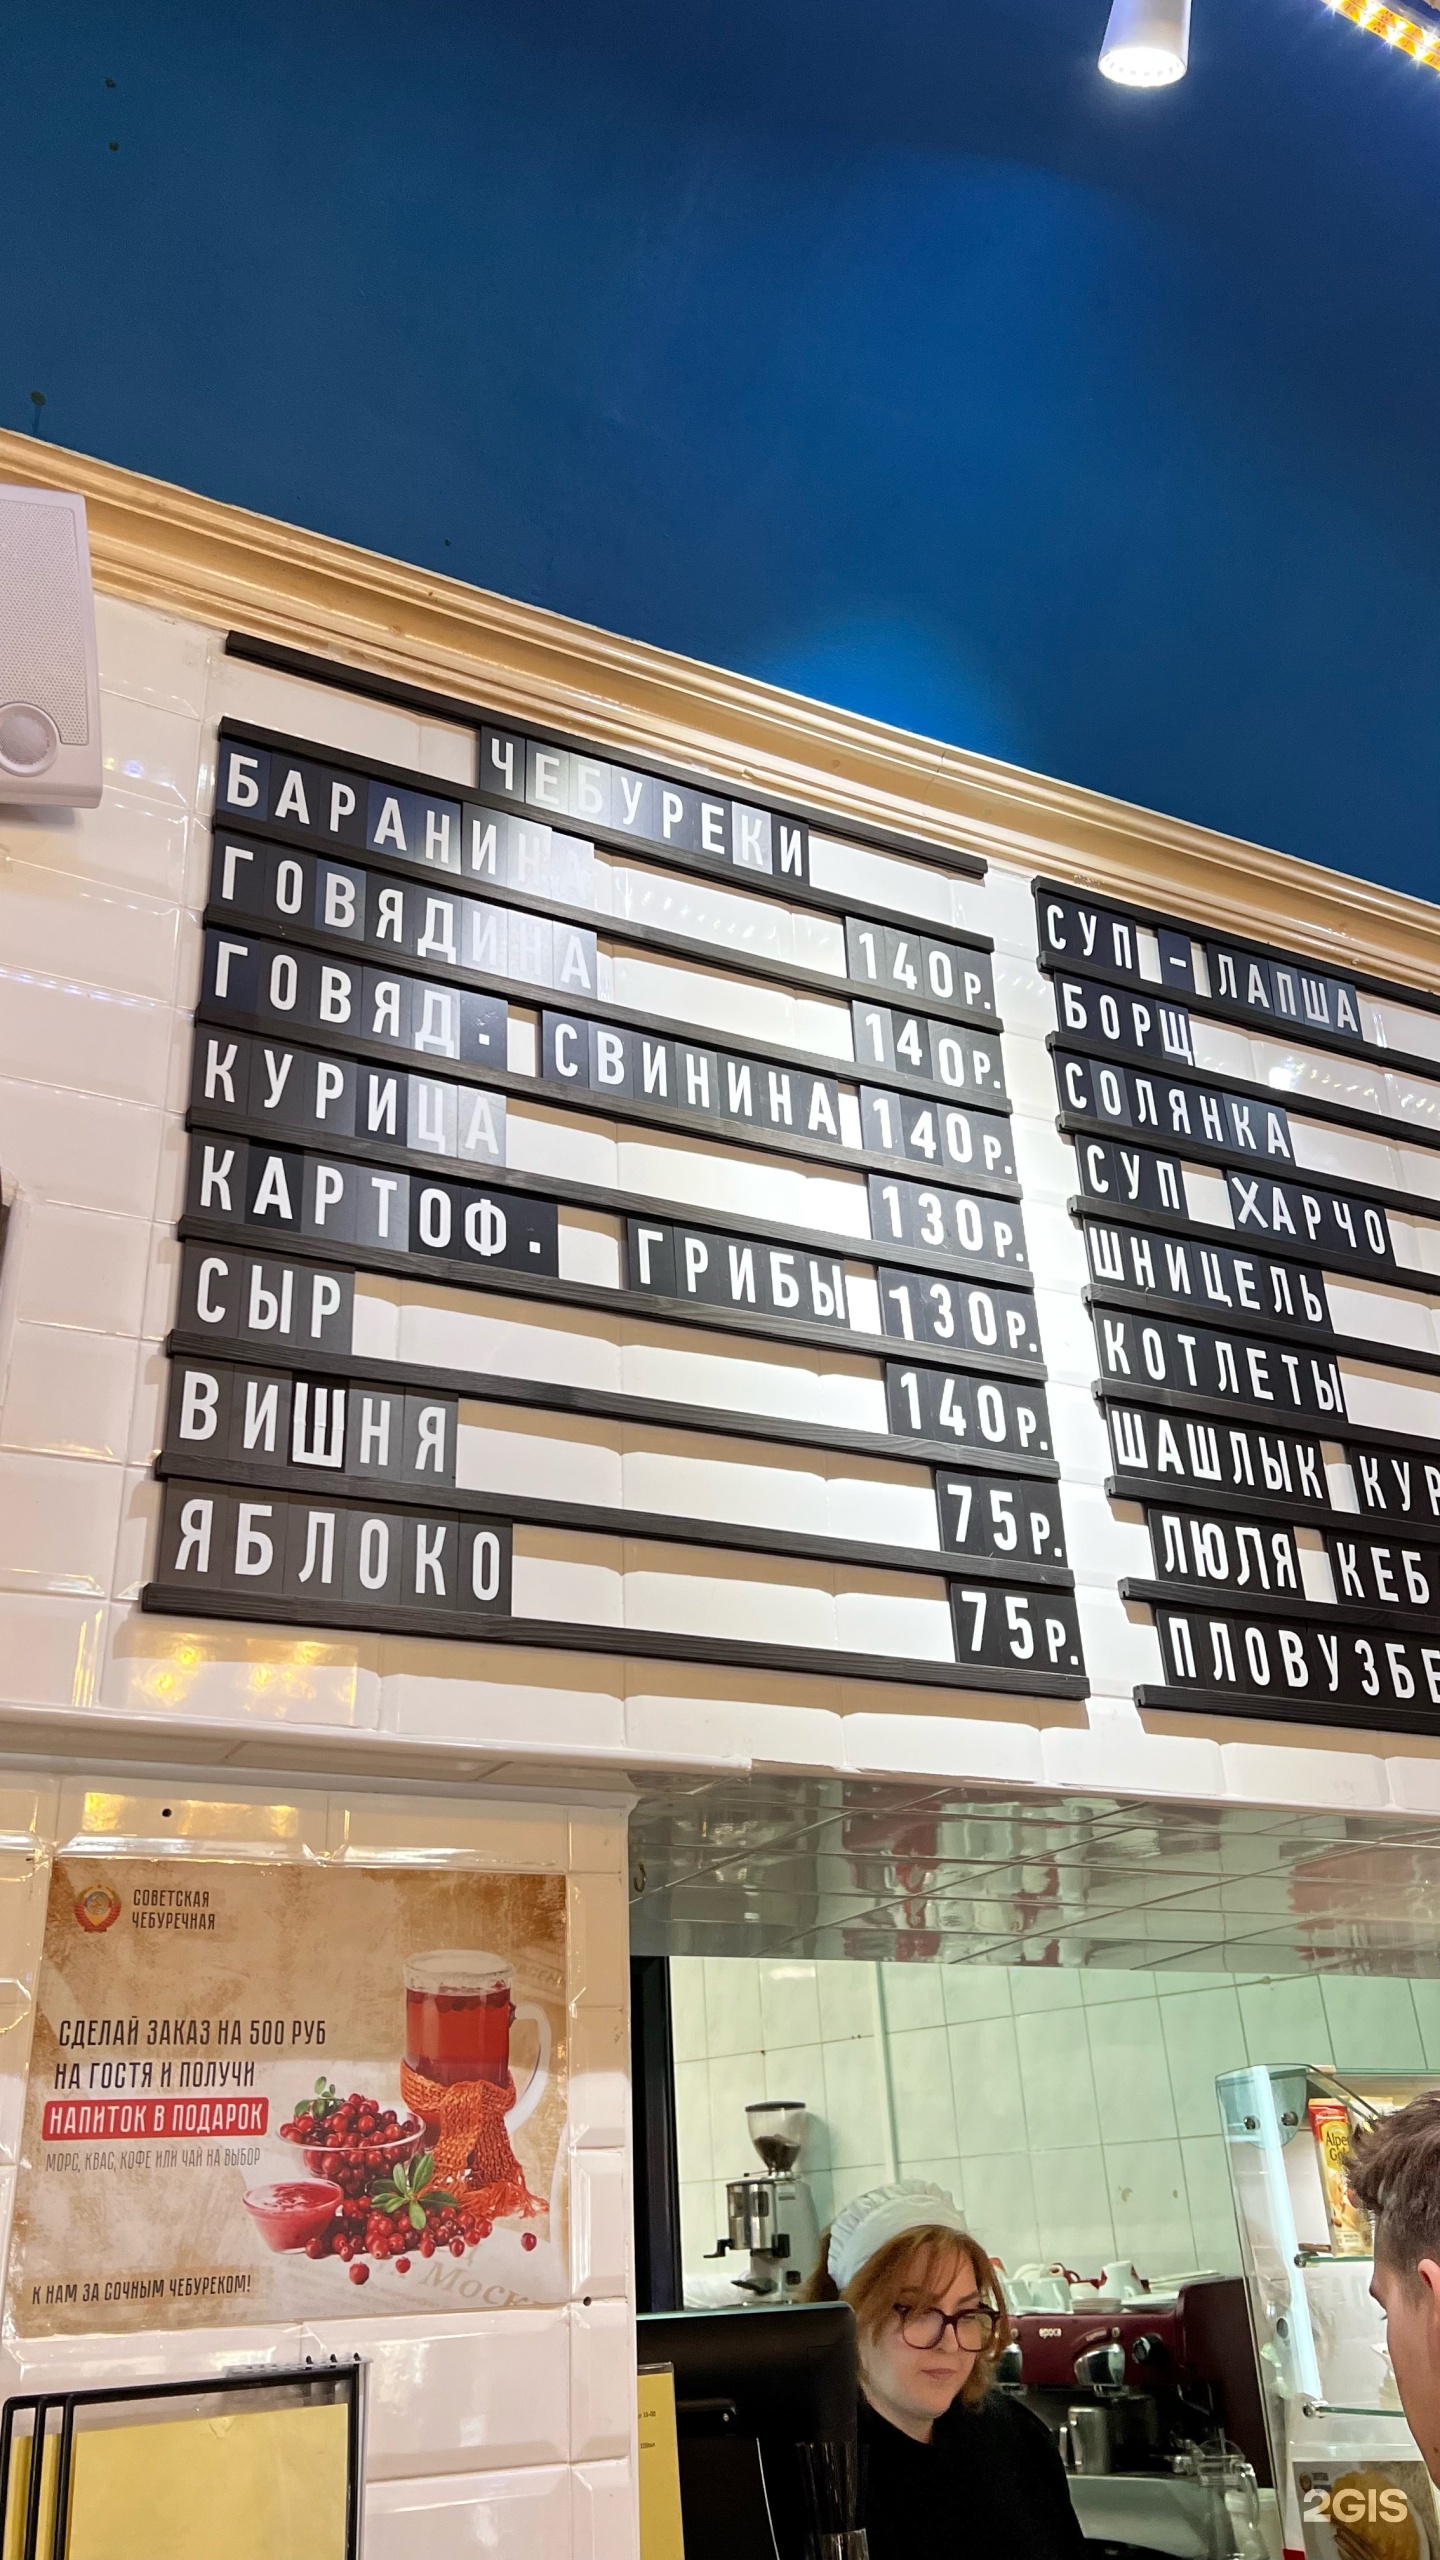 ЧЕБУРЕКИ
БАРАНИНА 140р.
ГОВЯДИНА 140р.
ГОВЯД. СВИНИНА 140р.
КУРИЦА 130р.
КАРТОФ. ГРИБЫ 130р.
СЫР 140р.
ВИШНЯ 75р.
ЯБЛОКО 75р.
СУП - ЛАПША
БОРЩ
СОЛЯНКА
СУП ХАРЧО
ШНИЦЕЛЬ
КОТЛЕТЫ
ШАШЛЫК КУР
ЛЮЛЯ КЕБ
ПЛОВУЗБЕ
СОВЕТСКАЯ
ЧЕБУРЕЧНАЯ
СДЕЛАЙ ЗАКАЗ НА 500 РУБ
НА ГОСТЯ И ПОЛУЧИ
НАПИТОК В ПОДАРОК
МОРС, КВАС, КОФЕ ИЛИ ЧАЙ НА ВЫБОР
К НАМ ЗА СОЧНЫМ ЧЕБУРЕКОМ!
Моск
epoca
2GIS